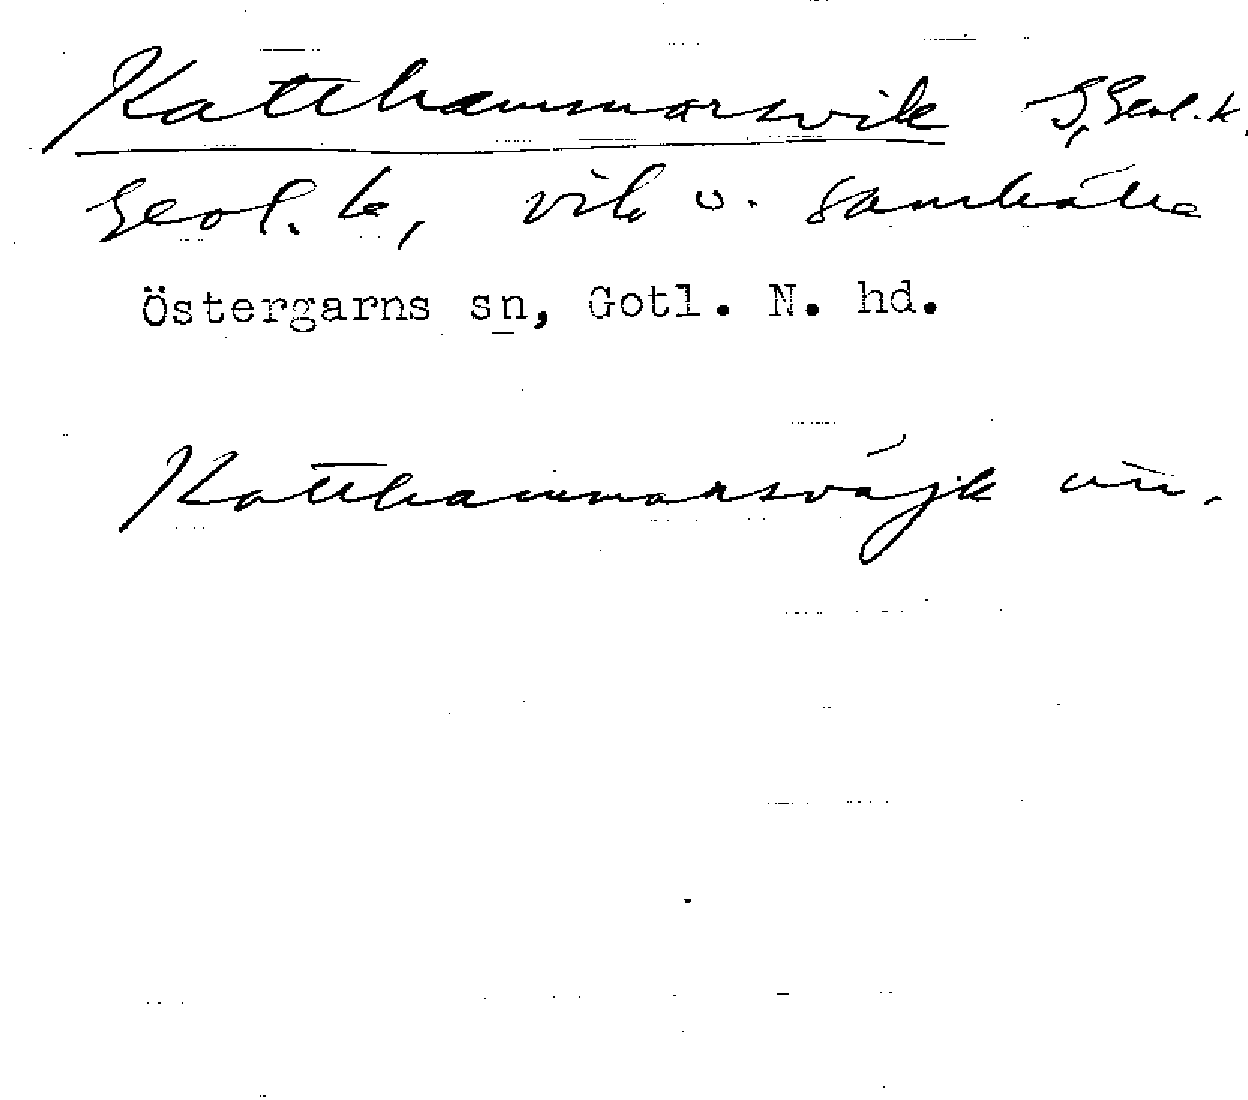 Katthammarsvik G, Geol. k.
Geol. k, vik o. samhälle
Östergarns sn, Gotl. N. hd.
Katthammarsväjk